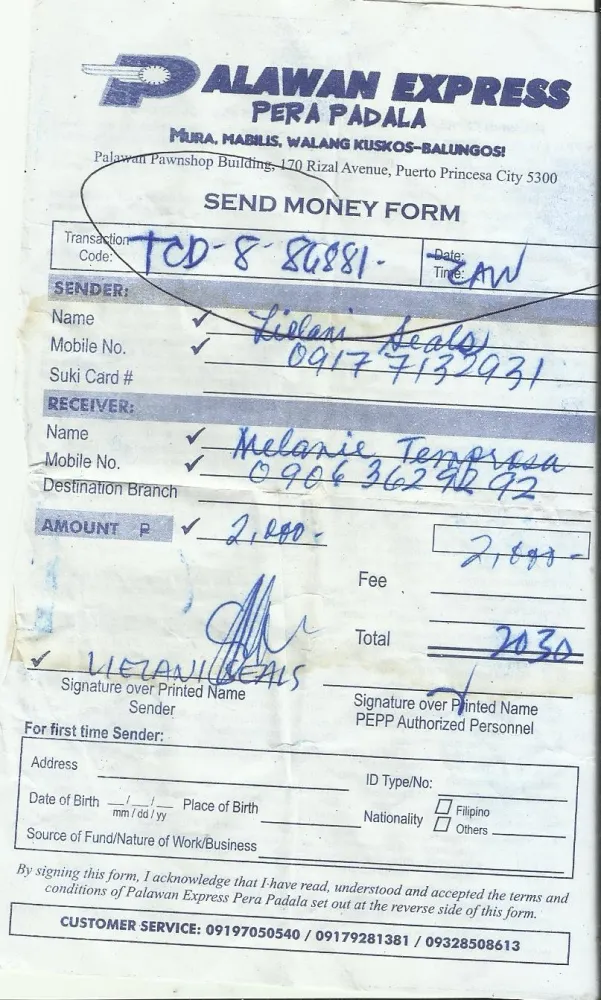 PALAWAN EXPRESS
PERA PADALA
MURA, MABILIS, WALANG KUSKOS-BALUNGOS!
Palawan Pawnshop Building, 170 Rizal Avenue, Puerto Princesa City 5300
SEND MONEY FORM
Transaction Code: TCD-8-86881- Date: Time:
SENDER:
Name ✓ Lielani Seals
Mobile No. ✓ 0917 7132931
Suki Card #
RECEIVER:
Name ✓ Melanie Temprosa
Mobile No. ✓ 0906 362
Destination Branch
AMOUNT P ✓ 2,000- 2,000-
Fee
Total 2030
✓ LIELANI SEALS
Signature over Printed Name
Sender
Signature over Printed Name
PEPP Authorized Personnel
For first time Sender:
Address
ID Type/No:
Date of Birth __/__/__ Place of Birth
mm / dd / yy
Nationality Filipino
Others
Source of Fund/Nature of Work/Business
By signing this form, I acknowledge that I have read, understood and accepted the terms and
conditions of Palawan Express Pera Padala set out at the reverse side of this form.
CUSTOMER SERVICE: 09197050540 / 09179281381 / 09328508613